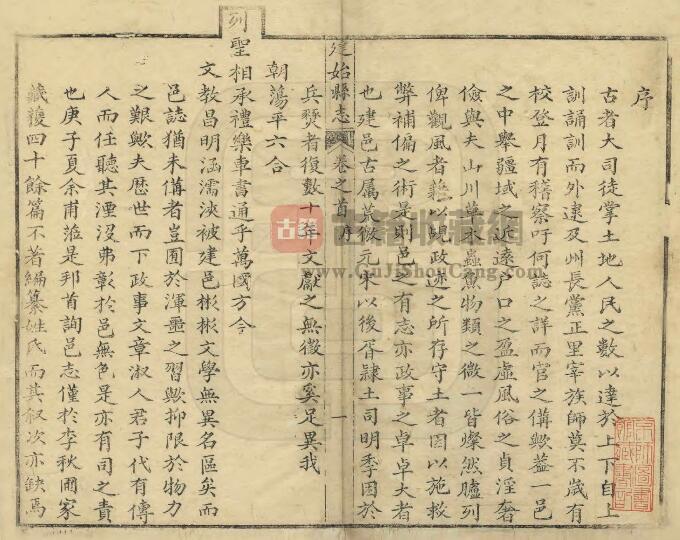 序
古者大司徒掌土地人民之數以達於上下自上
訓誦訓而外逮及州長黨正里宰族師莫不歲有
校登月有稽察吁何誌之詳而官之備歟蓋一邑
之中舉疆域之近遠户口之盈虛風俗之貞淫奢
儉與夫山川草木蟲魚物類之微一皆燦然臚列
俾觀風者藉以覘政迹之所存守土者因以施救
弊補偏之術是則邑之有志亦政事之卓卓大者
也建邑古属荒徼元宋以後胥隸土司明季困於
建始縣志 卷之首 序 一
兵燹者復數十年文獻之無徵亦奚足異我
朝蕩平六合
列聖相承禮樂車書通乎萬國方今
文教昌明涵濡浹被建邑彬彬文學無異名區矣而
邑誌猶未備者豈囿於渾噩之習歟抑限於物力
之艱歟夫歷世而下政事文章淑人君子代有傳
人而任聽其湮沒弗彰於邑無色是亦有司之責
也庚子夏余甫蒞是邦首詢邑志僅於李秋圃家
藏獲四十餘篇不著編纂姓氏而其叙次亦缺焉
古籍收藏网
www.GuJiShouCang.com